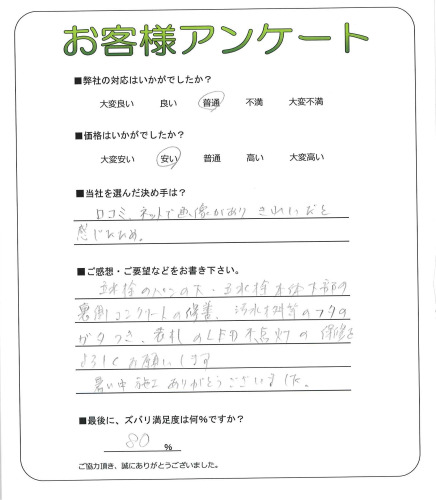 お客様アンケート
■弊社の対応はいかがでしたか?
大変良い 良い 普通 不満 大変不満
■価格はいかがでしたか?
大変安い 安い 普通 高い 大変高い
■当社を選んだ決め手は?
口コミ、ネットで画像があり きれいだと
感じたため。
■ご感想・ご要望などをお書き下さい。
立水栓の の穴・立水栓本体下部の
裏側コンクリートの修善、汚水桝等のフタの
ガタつき、表札のLED不点灯の 保修を
よろしくお願いします
暑い中 施工 ありがとうございました。
■最後に、ズバリ満足度は何%ですか?
80 %
ご協力頂き、誠にありがとうございました。